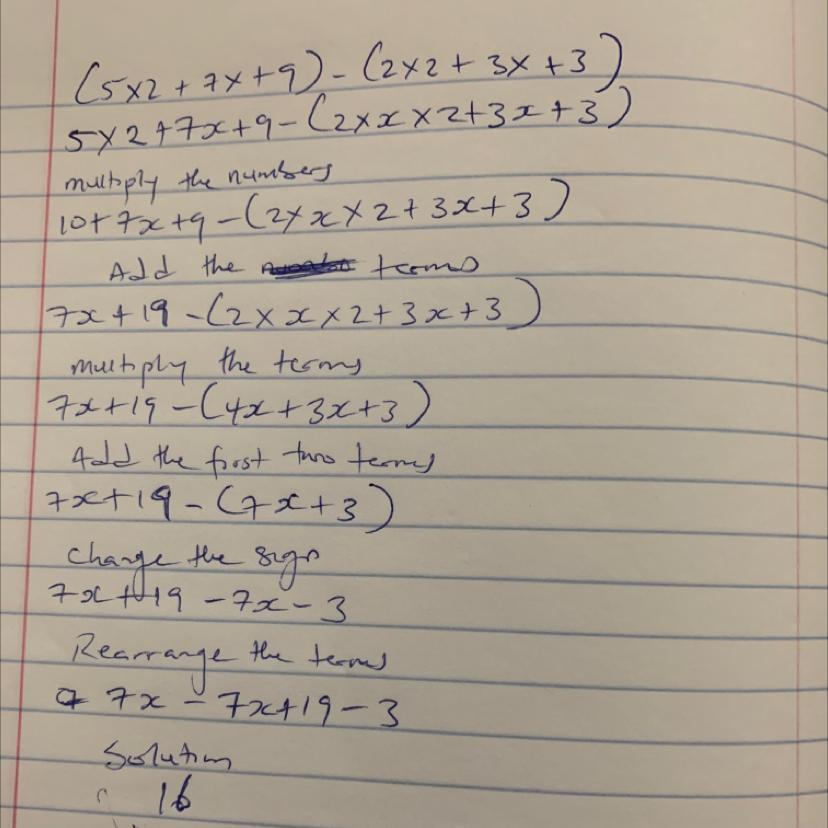 (5x2 + 7x + 9) - (2x2 + 3x + 3)
5x2+7x+9-(2×x×2+3x+3)
multiply the numbers
10+7x+9-(2×x×2+3x+3)
Add the terms
7x+19-(2×x×2+3x+3)
multiply the terms
7x+19-(4x+3x+3)
Add the first two terms
7x+19-(7x+3)
change the sign
7x+19-7x-3
Rearrange the terms
7x-7x+19-3
Solution
16